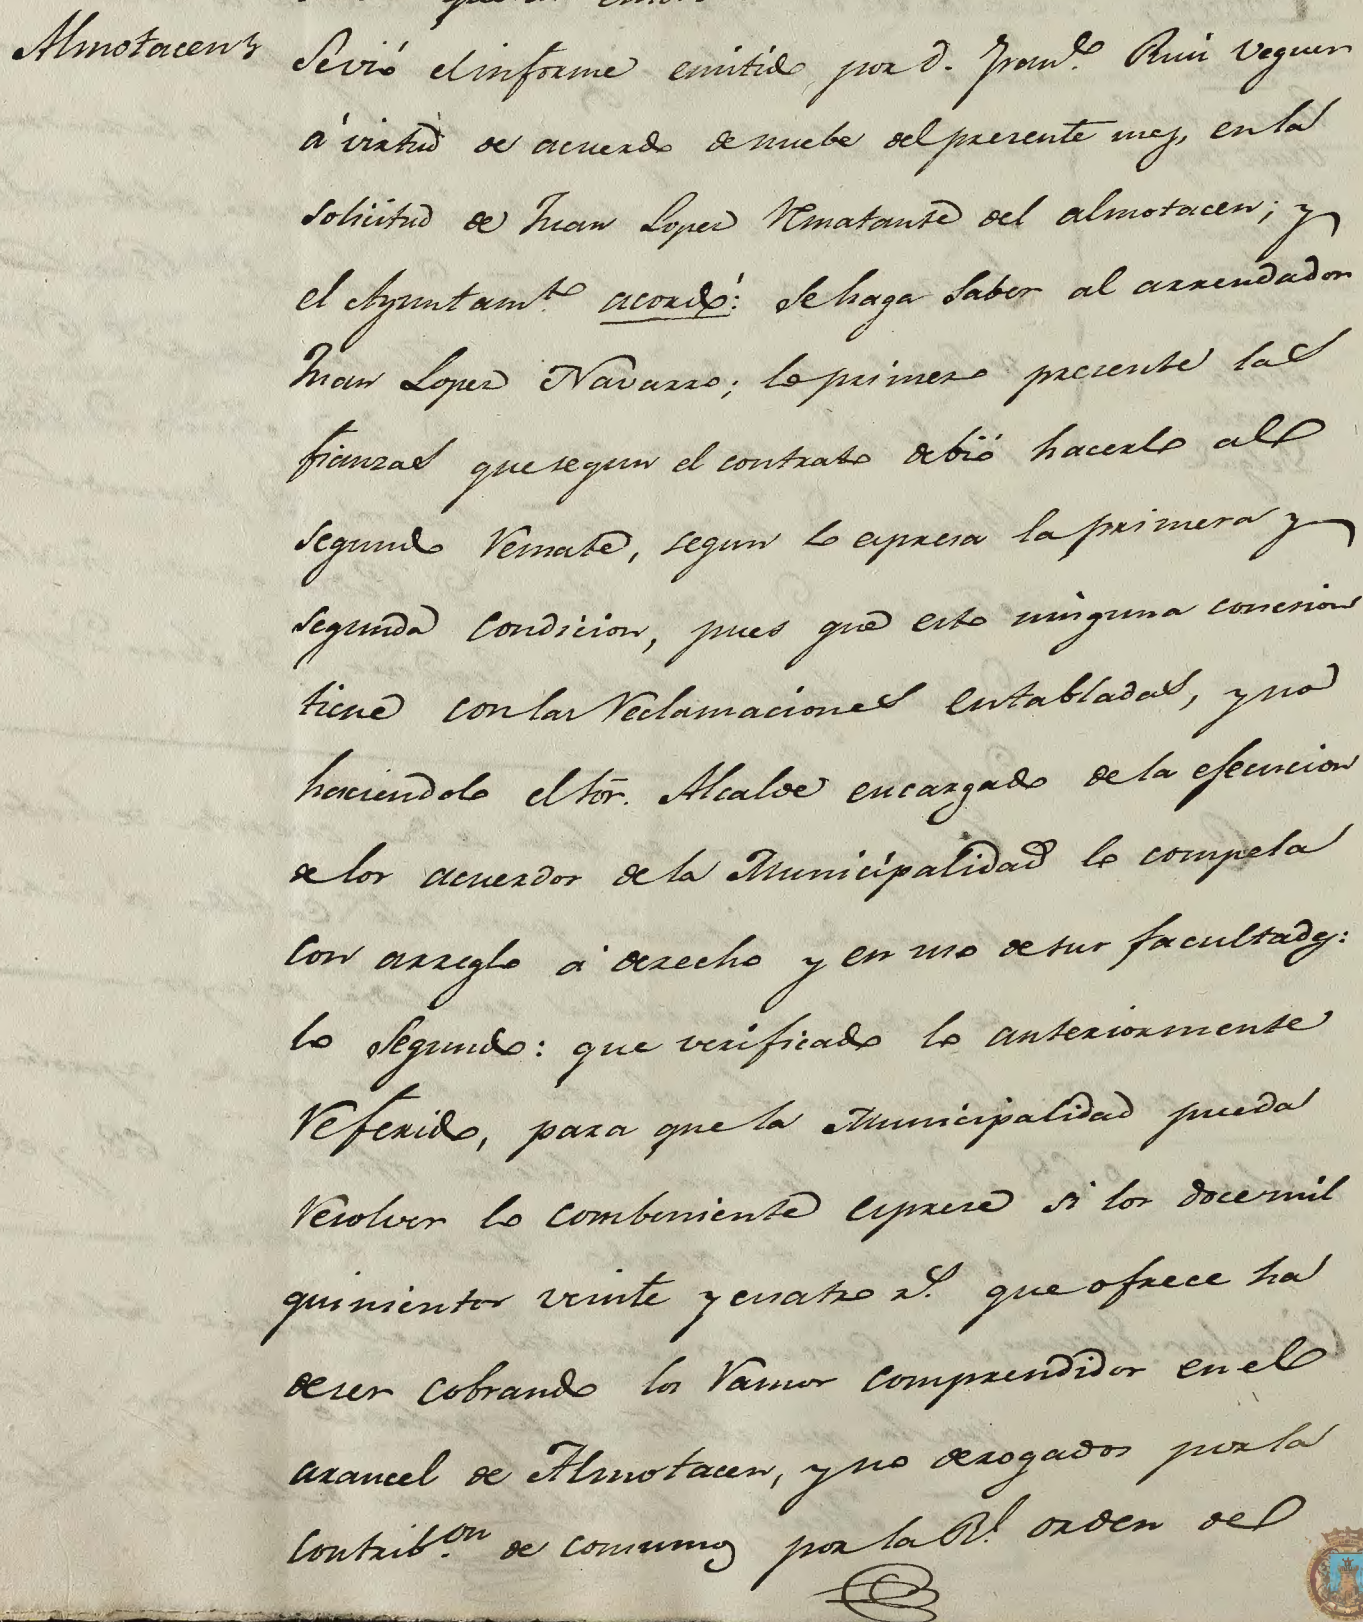 Almotacen
Se vió el informe emitido por D. Fran.co Ruiz Veguer
á virtud de acuerdo de nuebe del presente mes, en la
solicitud de Juan Lopez Rematante del almotacen; y
el Ayuntam.to acordó: Se haga saber al arrendador
Juan Lopez Navarro; lo primero presente las
fianzas que segun el contrato debió hacerlo al
segundo Remate, segun lo espresa la primera y
segunda condicion, pues que esto ninguna conesion
tiene con las Reclamaciones entabladas, y no
haciendolo el Sōr. Alcalde encargado de la ejecucion
de los acuerdos de la Municipalidad lo compela
con arreglo á derecho y en uso de sus facultades:
lo Segundo: que verificado lo anteriormente
Referido, para que la Municipalidad pueda
Resolver lo combeniente esprese si los doce mil
quinientos veinte y cuatro r.s que ofrece ha
de ser cobrando los Ramos comprendidos en el
arancel de Almotacen, y no derogados por la
contrib.on de consumos por la R.l orden del